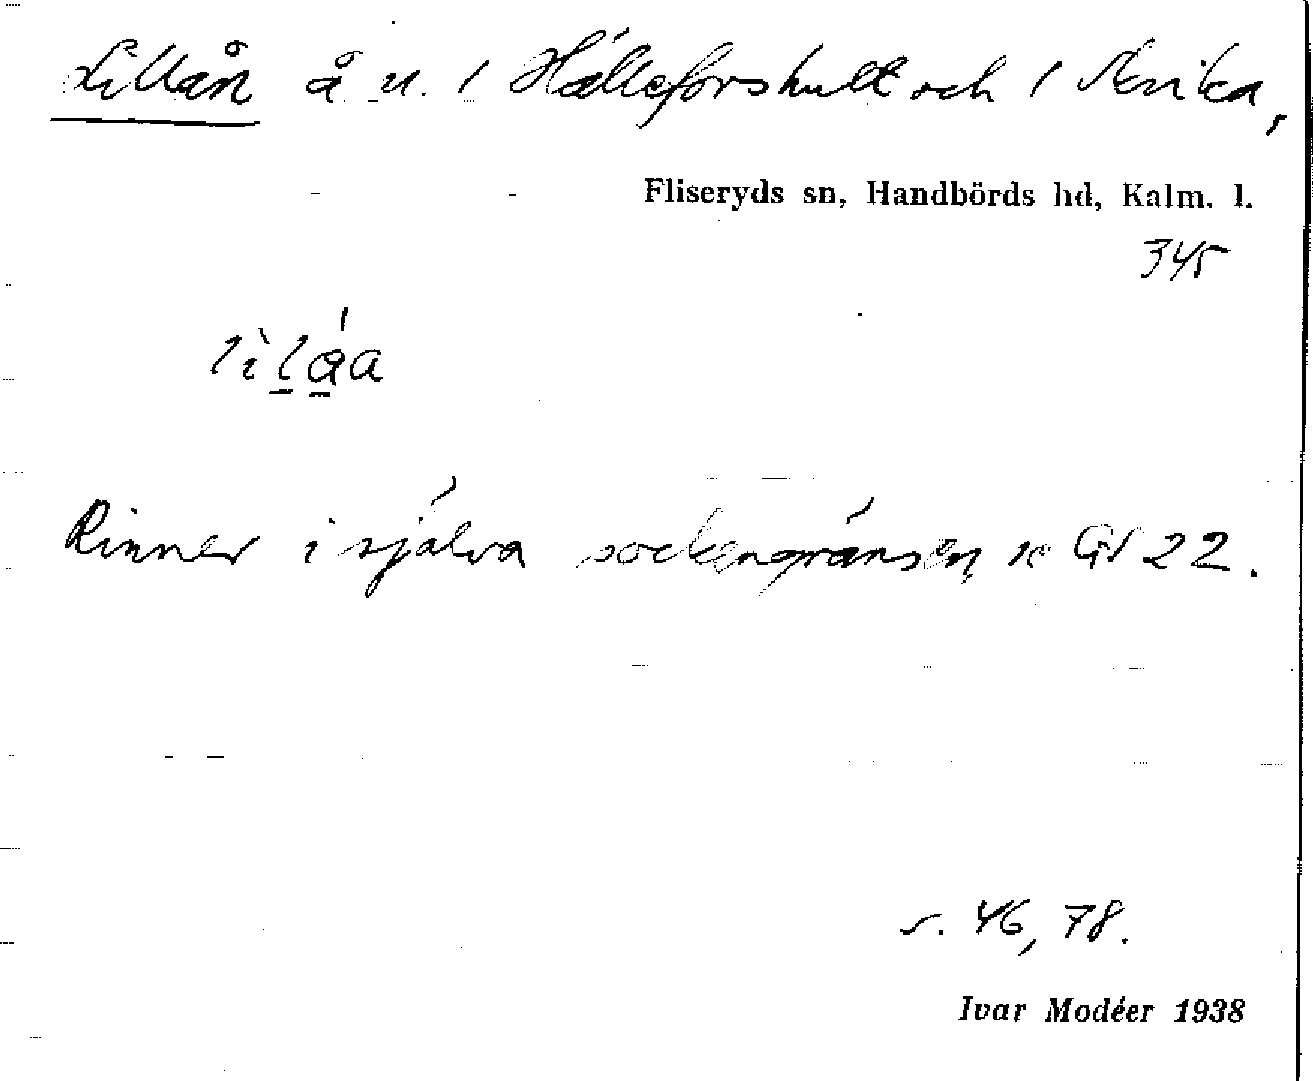 Lillån å u. / Hälleforshult och /
Fliseryds sn, Handbörds hd, Kalm. l.
345
Rinner i själva sockengränsen, se GV 22.
s. 46, 78.
Ivar Modéer 1938